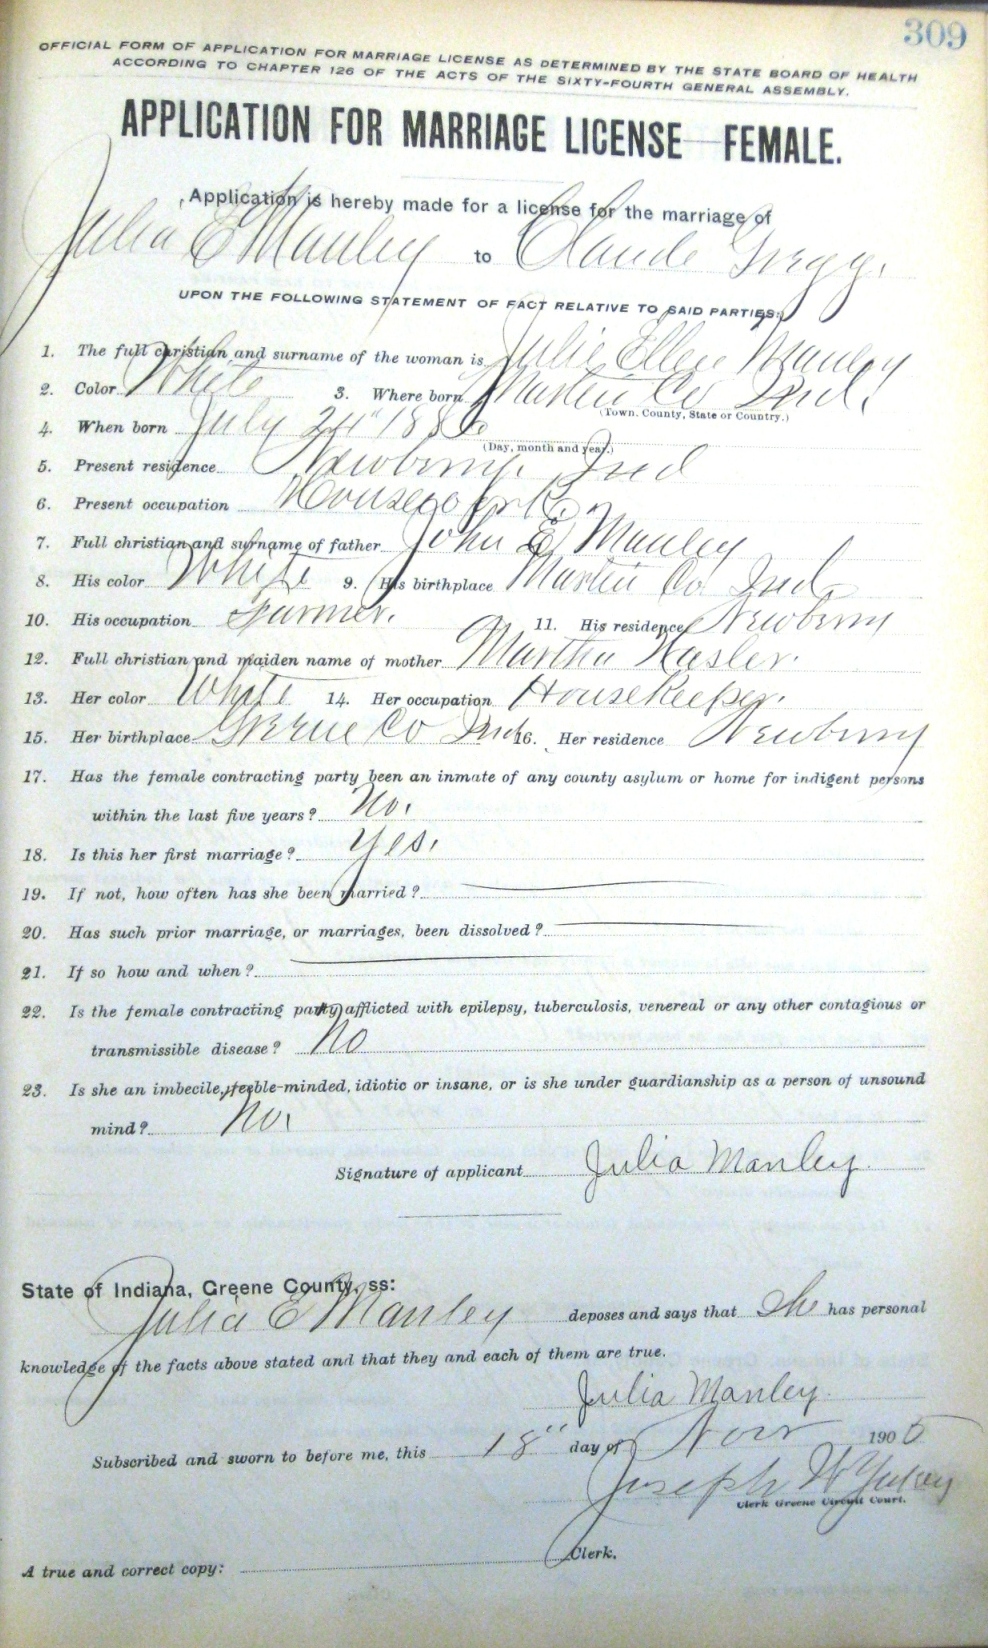 309
OFFICIAL FORM OF APPLICATION FOR MARRIAGE LICENSE AS DETERMINED BY THE STATE BOARD OF HEALTH
ACCORDING TO CHAPTER 126 OF THE ACTS OF THE SIXTY-FOURTH GENERAL ASSEMBLY.
APPLICATION FOR MARRIAGE LICENSE FEMALE.
Application is hereby made for a license for the marriage of
Julia E Manley to Claude Gregg.
UPON THE FOLLOWING STATEMENT OF FACT RELATIVE TO SAID PARTIES:
1. The full christian and surname of the woman is Julia Ellen Manley
2. Color White 3. Where born Martin Co Ind.
(Town. County, State or Country.)
4. When born July 24" 188
(Day, month and year.)
5. Present residence Newberry Ind
6. Present occupation Housework.
7. Full christian and surname of father John E Manley
8. His color White 9. His birthplace Martin Co Ind.
10. His occupation Farmer. 11. His residence Newberry
12. Full christian and maiden name of mother Martha Hasler.
13. Her color White 14. Her occupation Housekeeper.
15. Her birthplace Greene Co Ind 16. Her residence Newberry
17. Has the female contracting party been an inmate of any county asylum or home for indigent persons
within the last five years? No.
18. Is this her first marriage? Yes.
19. If not, how often has she been married?
20. Has such prior marriage, or marriages, been dissolved?
21. If so how and when?
22. Is the female contracting party afflicted with epilepsy, tuberculosis, venereal or any other contagious or
transmissible disease? No
23. Is she an imbecile, feeble-minded, idiotic or insane, or is she under guardianship as a person of unsound
mind? No.
Signature of applicant Julia Manley.
State of Indiana, Greene County, ss:
Julia E Manley deposes and says that She has personal
knowledge of the facts above stated and that they and each of them are true.
Julia Manley.
Subscribed and sworn to before me, this 18" day of Nov 190
Joseph W
Clerk Greene Circuit Court.
A true and correct copy: Clerk.